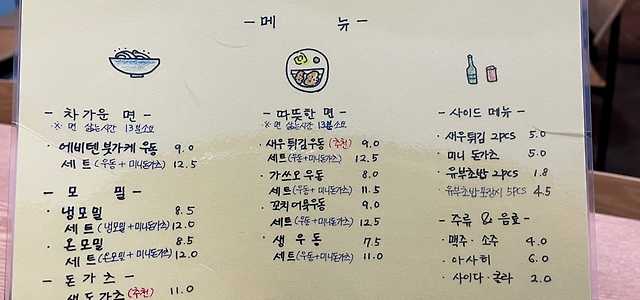 - 메 뉴 -
- 차가운 면 -
※ 면 삶는시간 13분소요
· 에비텐 붓가케 우동 9.0
세트 (우동+미니돈가츠) 12.5
- 모 밀 -
· 냉모밀 8.5
세트 (냉모밀+미니돈가츠) 12.0
· 온모밀 8.5
세트 (온모밀+미니돈가츠) 12.0
- 돈가츠 -
생돈가츠 (추천) 11.0
- 따뜻한 면 -
※ 면 삶는시간 13분소요
· 새우튀김우동 (추천) 9.0
세트 (우동+미니돈가츠) 12.5
· 가쓰오우동 8.0
세트 (우동+미니돈가츠) 11.5
· 꼬치어묵우동 9.0
세트 (우동+미니돈가츠) 12.5
· 생우동 7.5
세트 (우동+미니돈가츠) 11.0
- 사이드 메뉴 -
· 새우튀김 2PCS 5.0
· 미니 돈가츠 5.0
· 유부초밥 2PCS 1.8
· 유부초밥포장시 5PCS 4.5
- 주류 & 음료 -
· 맥주·소주 4.0
· 아사히 6.0
· 사이다·콜라 2.0